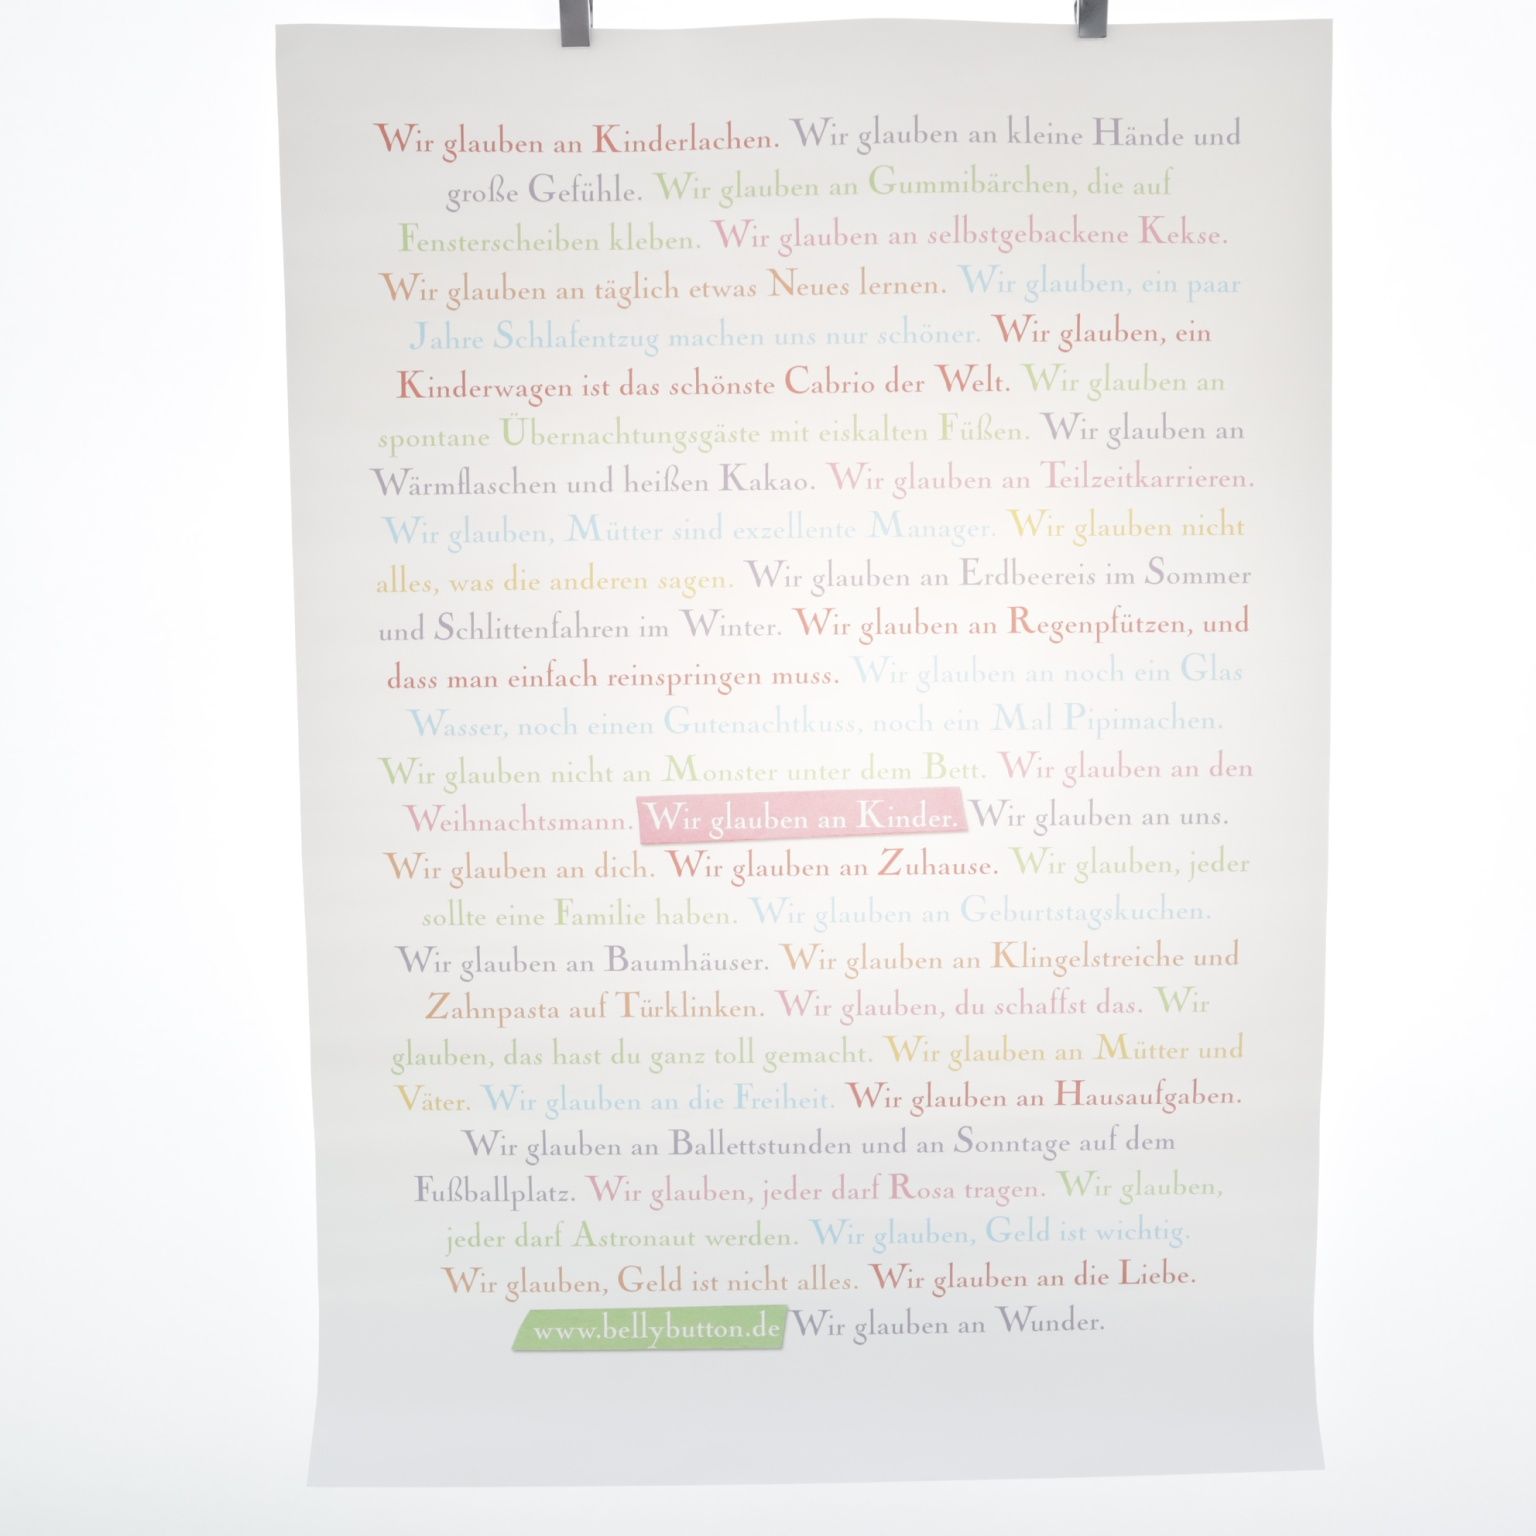 Wir glauben an Kinderlachen. Wir glauben an kleine Hände und
große Gefühle. Wir glauben an Gummibärchen, die auf
Fensterscheiben kleben. Wir glauben an selbstgebackene Kekse.
Wir glauben an täglich etwas Neues lernen. Wir glauben, ein paar
Jahre Schlafentzug machen uns nur schöner. Wir glauben, ein
Kinderwagen ist das schönste Cabrio der Welt. Wir glauben an
spontane Übernachtungsgäste mit eiskalten Füßen. Wir glauben an
Wärmflaschen und heißen Kakao. Wir glauben an Teilzeitkarrieren.
Wir glauben, Mütter sind exzellente Manager. Wir glauben nicht
alles, was die anderen sagen. Wir glauben an Erdbeereis im Sommer
und Schlittenfahren im Winter. Wir glauben an Regenpfützen, und
dass man einfach reinspringen muss. Wir glauben an noch ein Glas
Wasser, noch einen Gutenachtkuss, noch ein Mal Pipimachen.
Wir glauben nicht an Monster unter dem Bett. Wir glauben an den
Weihnachtsmann. Wir glauben an Kinder. Wir glauben an uns.
Wir glauben an dich. Wir glauben an Zuhause. Wir glauben, jeder
sollte eine Familie haben. Wir glauben an Geburtstagskuchen.
Wir glauben an Baumhäuser. Wir glauben an Klingelstreiche und
Zahnpasta auf Türklinken. Wir glauben, du schaffst das. Wir
glauben, das hast du ganz toll gemacht. Wir glauben an Mütter und
Väter. Wir glauben an die Freiheit. Wir glauben an Hausaufgaben.
Wir glauben an Ballettstunden und an Sonntage auf dem
Fußballplatz. Wir glauben, jeder darf Rosa tragen. Wir glauben,
jeder darf Astronaut werden. Wir glauben, Geld ist wichtig.
Wir glauben, Geld ist nicht alles. Wir glauben an die Liebe.
www.bellybutton.de Wir glauben an Wunder.